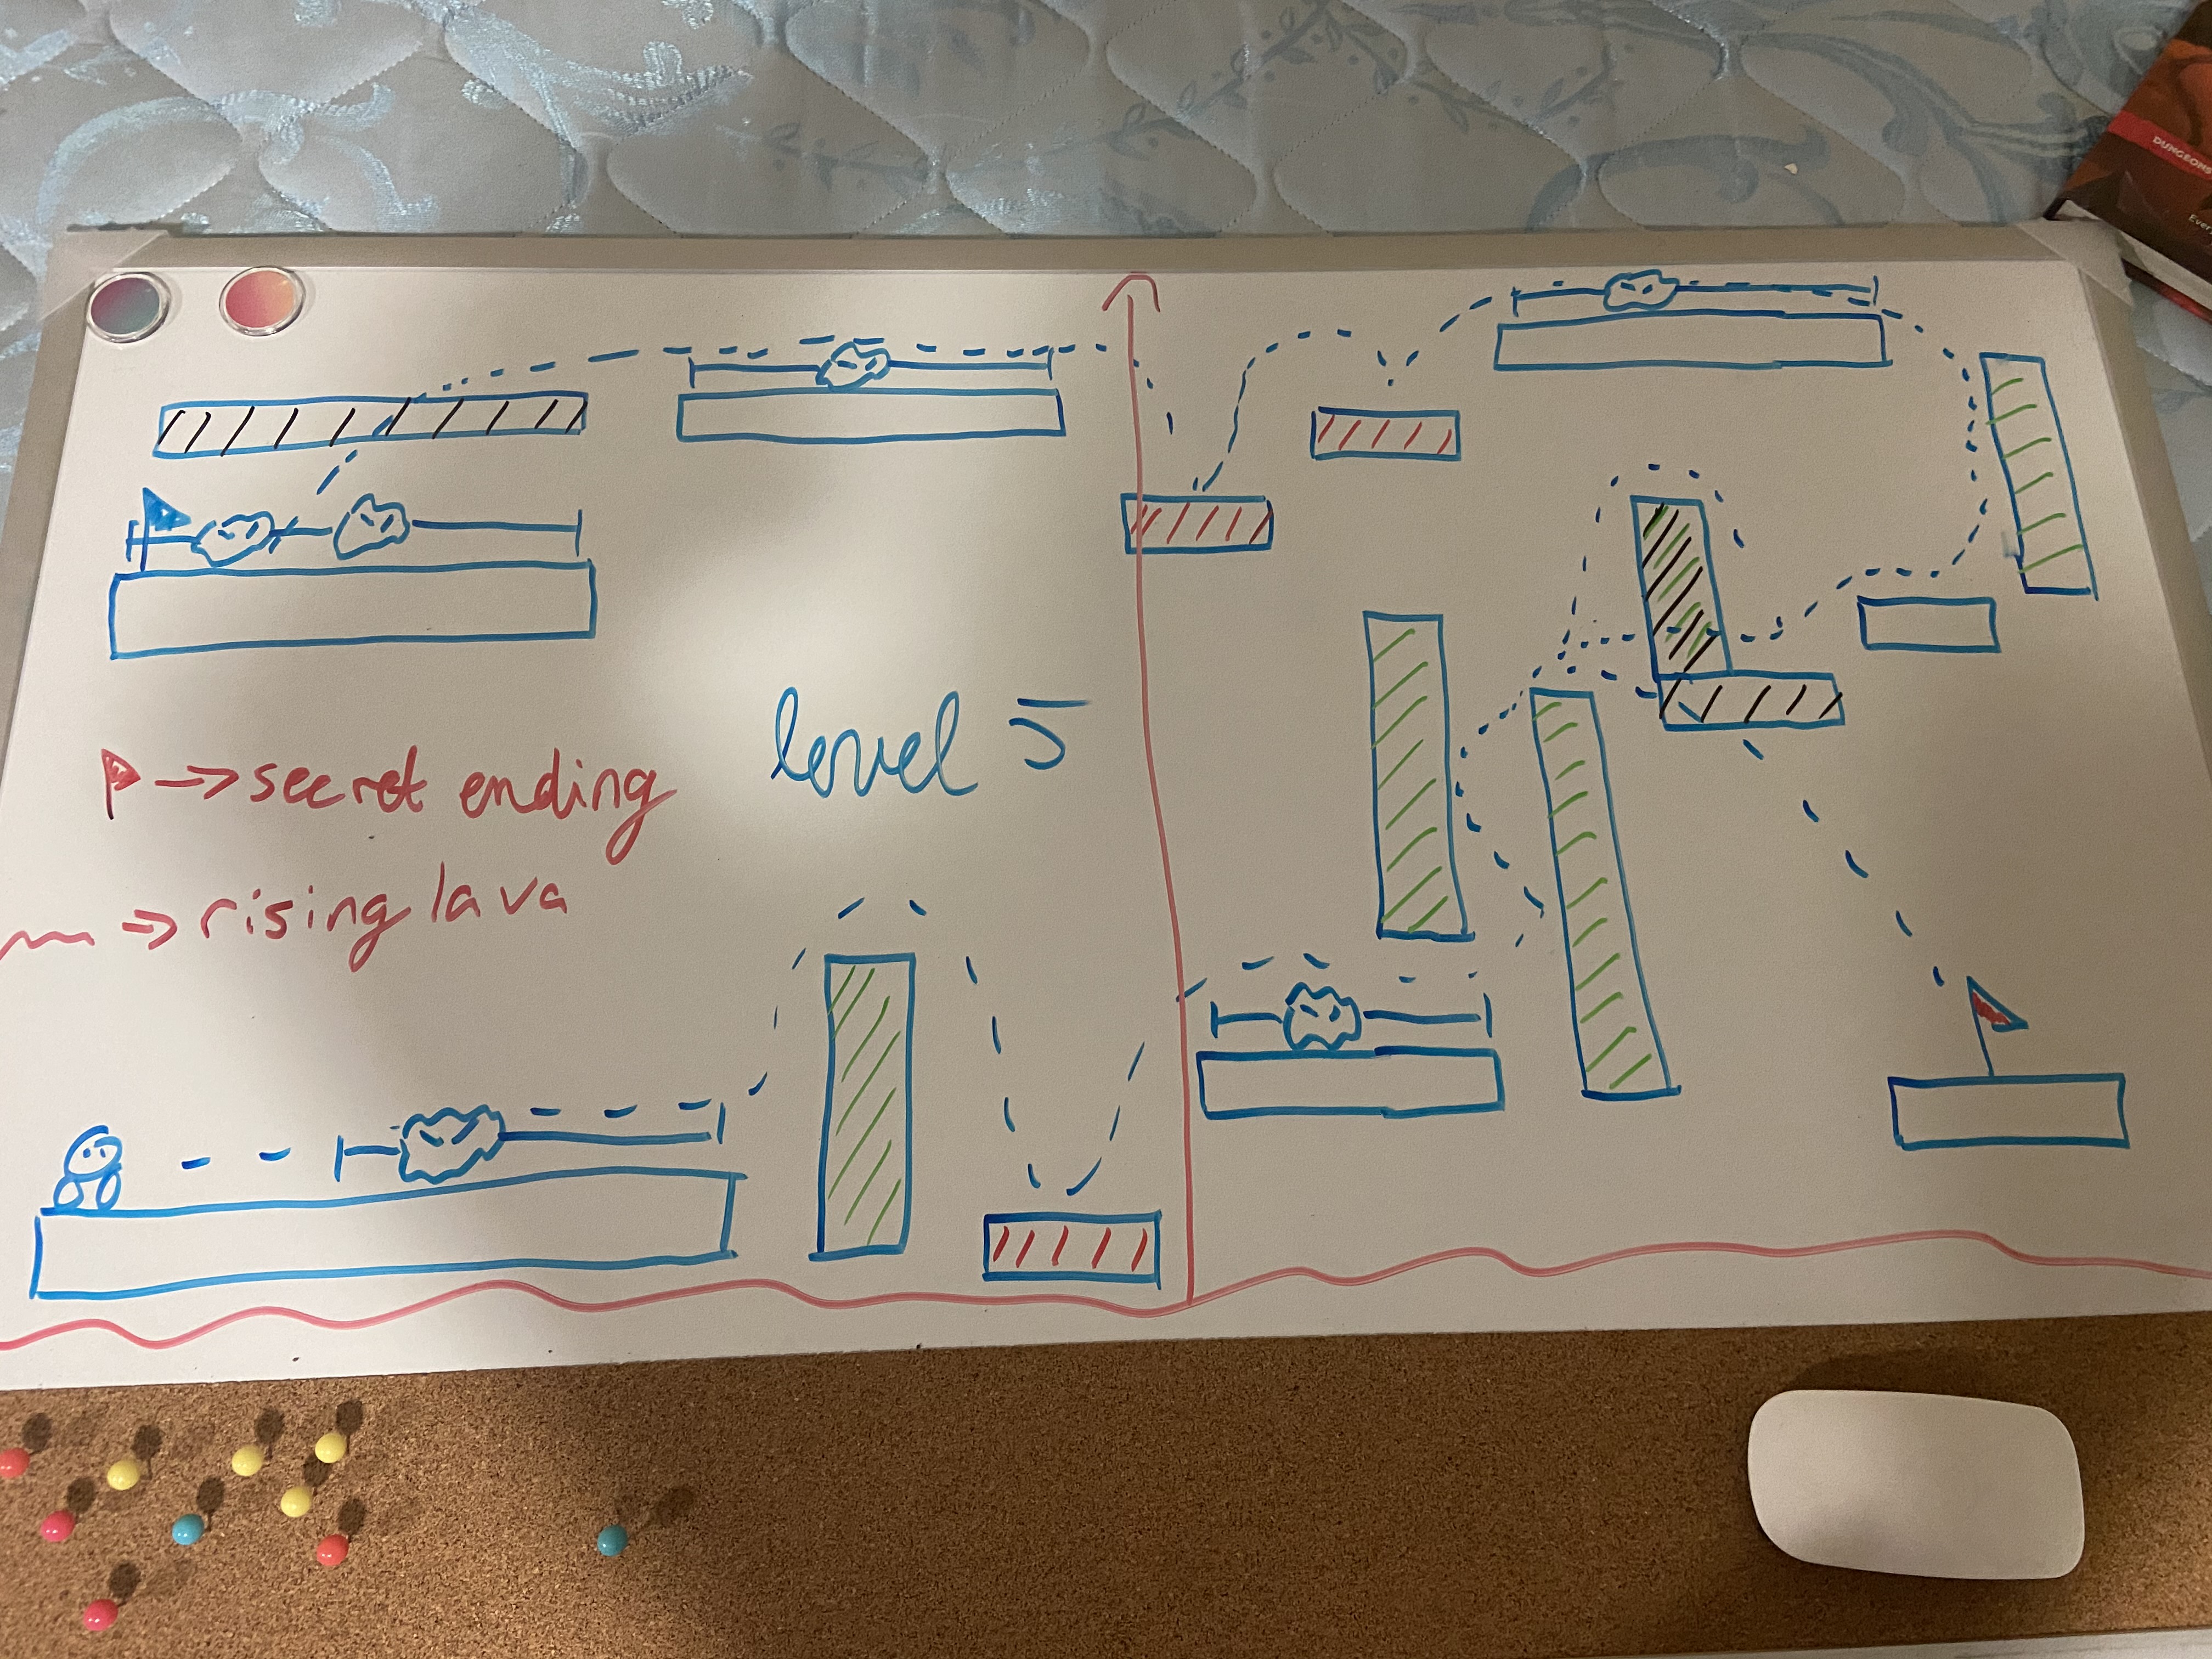 DUNGEONS
level 5
-> secret ending
-> rising lava